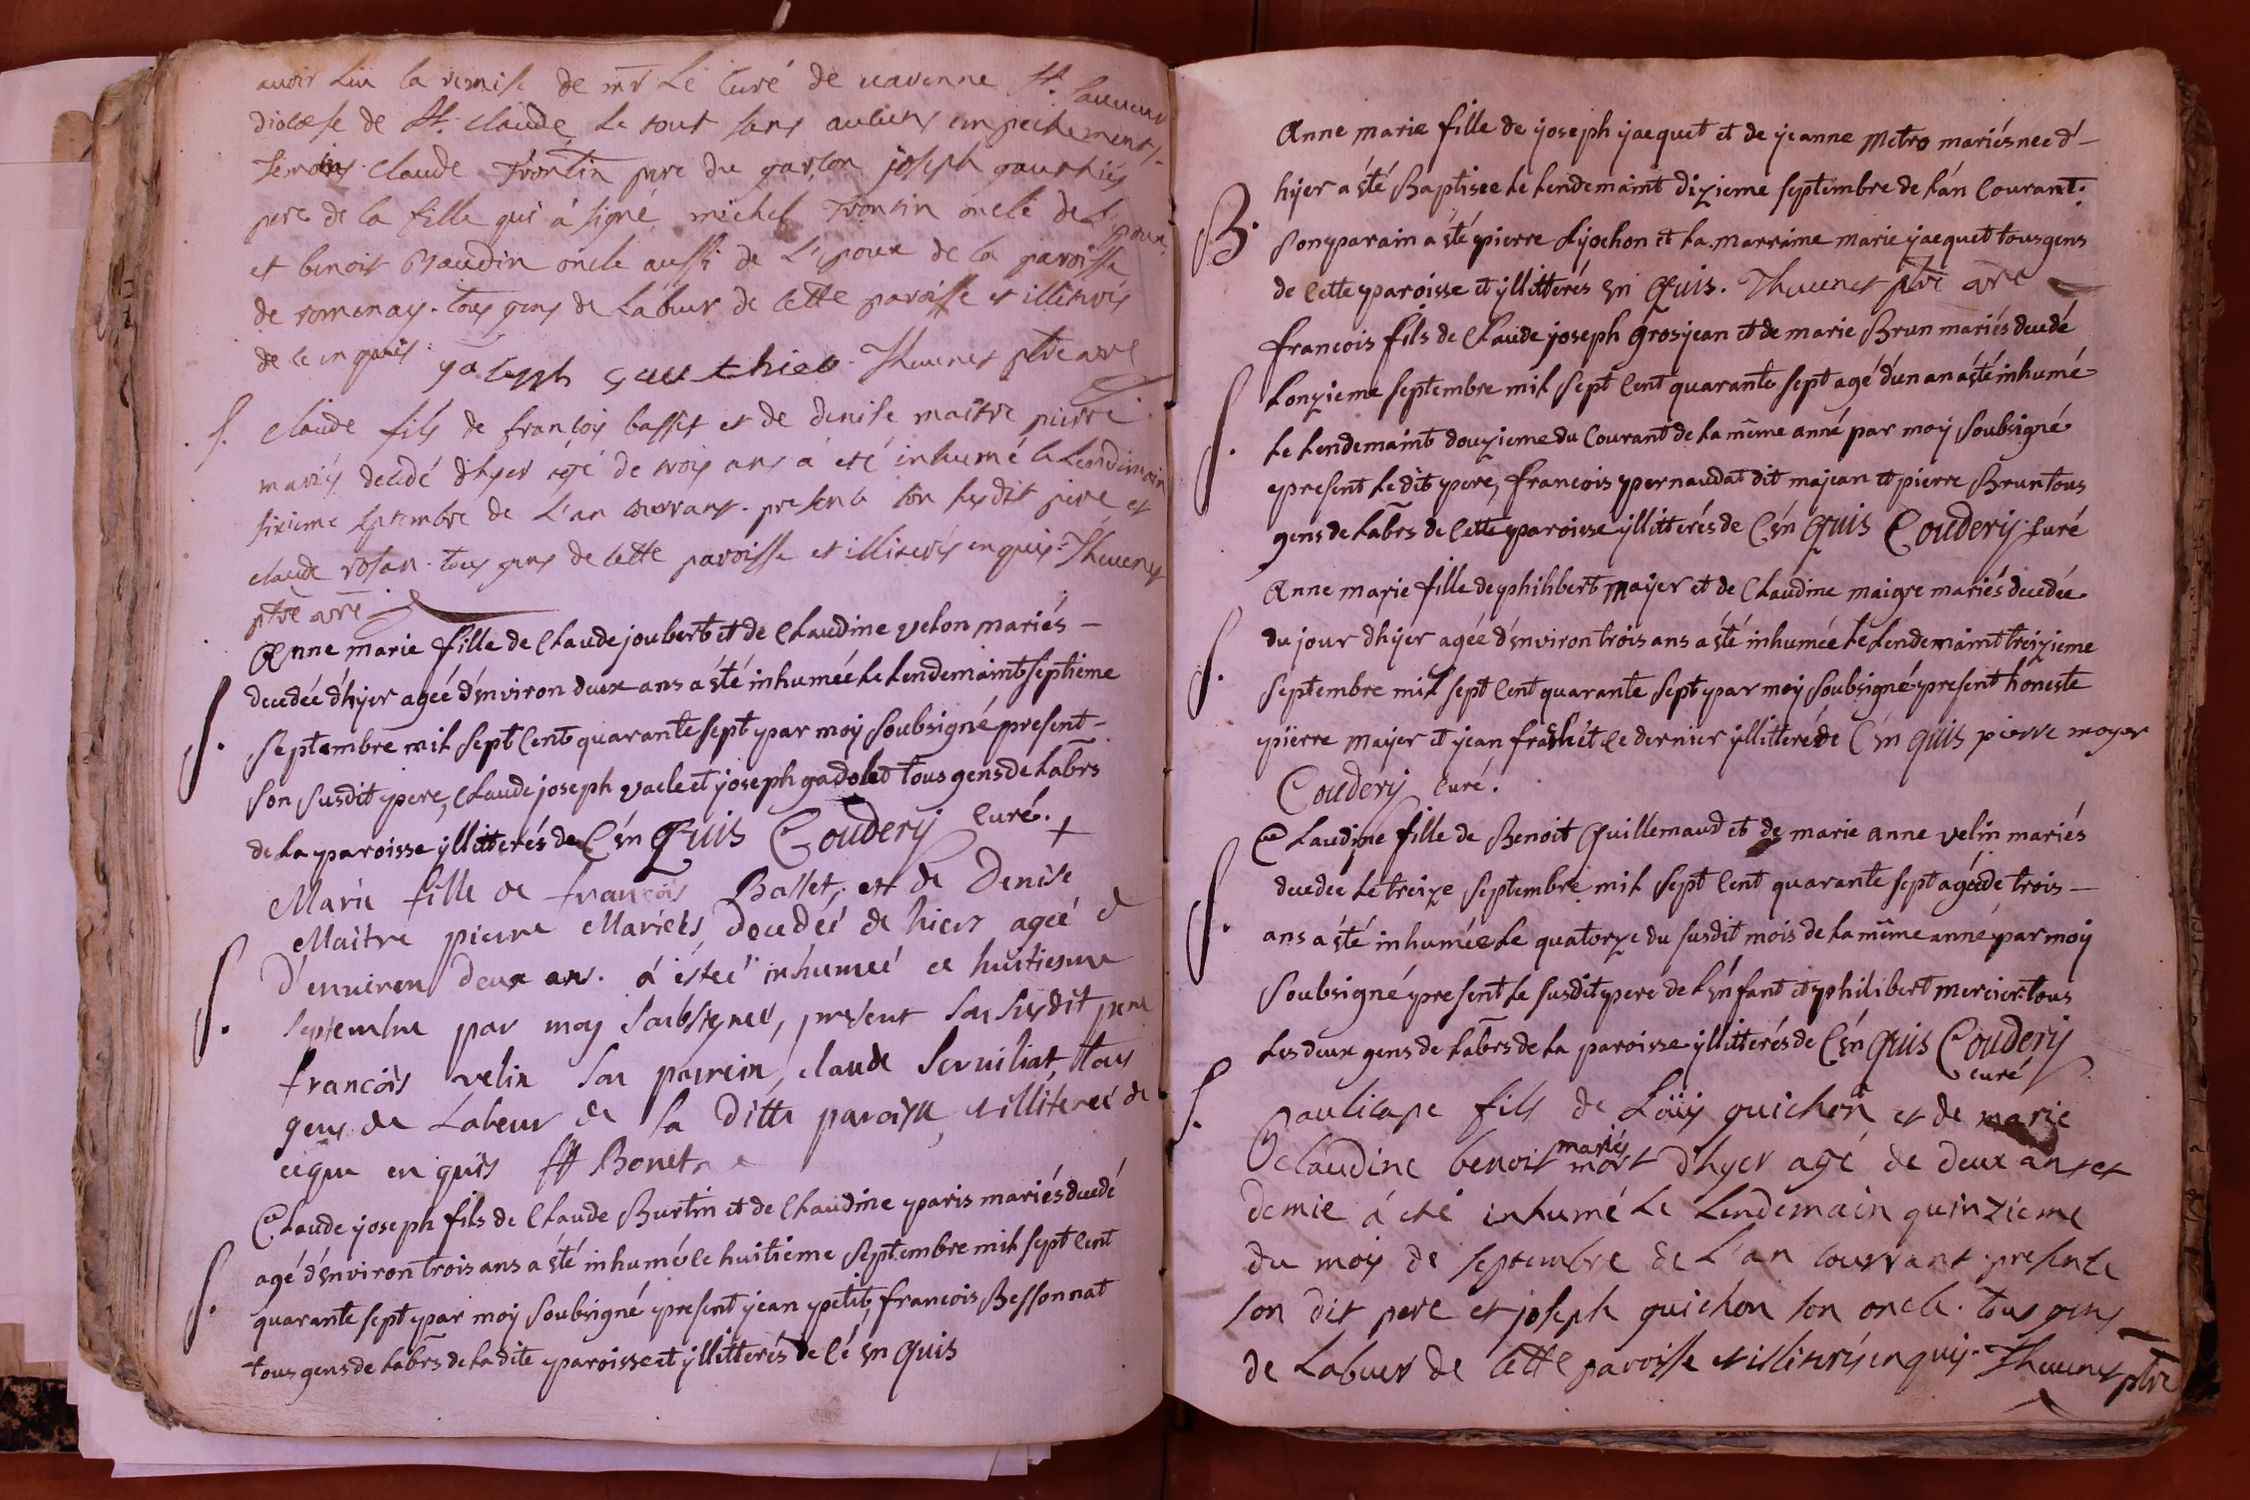 avoir Lüu la remise de mr Le Curé de varenne st. sauveur
diocese de st. claude Le tout sans aucuns empechements.
temoins claude Trontin pere du garçon joseph gauthier
pere de la fille qui á signé michel Trontin oncle de l'epoux
et benoit Naudin oncle aussi de L'epoux de la paroisse
de romenay. tous gens de Labeur de cette paroisse et illiterés
de ce enquis. yoseph gauthier. Thevenet ptre vre
S. claude fils de françois basset et de denise maitre pierre
mariés decedé d'hyer agé de trois ans á été inhumé le Lendemain
sixieme septembre de L'an courrant. presents son susdit pere et
claude rosan. tous gens de cette paroisse et illiterés enquis. Thevenet
ptre vre
Anne marie fille de Claude joubert et de Claudine velon mariés –
S. decedée d'hyer agée d'énviron deux ans a été inhumée Le Lendemaint septieme
septembre mil sept Cent quarante sept par moy soubsigné present –
son susdit pere, Claude joseph vacle et joseph gadolet tous gens de Labrs
de La paroisse yllitterés de C'én Quis Coudery Curé. +
Marie fille de francois Basset, et de Denise
Maitre pierre Mariéés, Decedeé de hier ageé d
S. D'environ deux ans. á ésteé inhumeé ce huitiesme
septembre par moy soubsigner, present son susdit pere
francois velin son pairein, claude Serviliat, tous
gens de Labeur de la ditte paroisse, et illitereé de
ceque en quis ff Bonet
Claude joseph fils de Claude Burtin et de Claudine paris mariés decedé
S. agé d'énviron trois ans a été inhumé le huitieme septembre mil sept Cent
quarante sept par moy soubsigné present jean petit, francois Bessonnat
tous gens de Labrs de Ladite paroisse et yllitterés de Cé én Quis
Anne marie fille de joseph jacquet et de jeanne Metro mariés neé d'–
B. hyer a été Baptiseé Le Lendemaint dizieme septembre de L'án Courant.
son parain a été pierre Lyochon et La marraine marie jacquet tous gens
de Cette paroisse et yllitterés én Quis. Thevenet ptre vre
francois fils de Claude joseph grosjean et de marie Brun mariés decedé
S. Lonzieme septembre mil sept Cent quarante sept agé d'un an a été inhumé
Le Lendemaint douzieme du Courant de La même anné par moy soubsigné
present Le dit pere, francois pernaudat dit majean et pierre Brun tous
gens de Labrs de Cette paroisse yllitterés de C'én Quis Coudery Curé
Anne marie fille de philibert Mayer et de Claudine maigre mariés decedée
S. du jour d'hyer agée d'énviron trois ans a été inhumée Le Lendemaint treizieme
septembre mil sept Cent quarante sept par moy soubsigné present honeste
pierre Mayer et jean frachét Ce dernier yllitteré de C'én Quis pierre moyer
Coudery Curé.
Claudine fille de Benoit Guillemaud et de marie anne velin mariés
S. decedeé Le treize septembre mil sept Cent quarante sept agéé de trois –
ans a été inhumée Le quatorze du susdit mois de La même anné par moy
soubsigné present Le susdit pere de L'énfant et philibert mercier tous
Les deux gens de Labrs de La paroisse yllitterés de C'én Quis Coudery
curé
S. Paulicape fils de Loüis guichon et de marie
claudine benoit mariés mort d'hyer agé de deux ans et
demie á eté inhumé Le Lendemain quinzieme
du mois de septembre de L'an courrant presents
son dit pere et joseph guichon son oncle. tous gens
de Labeur de Cette paroisse et illiterés enquis. Thevenet ptre